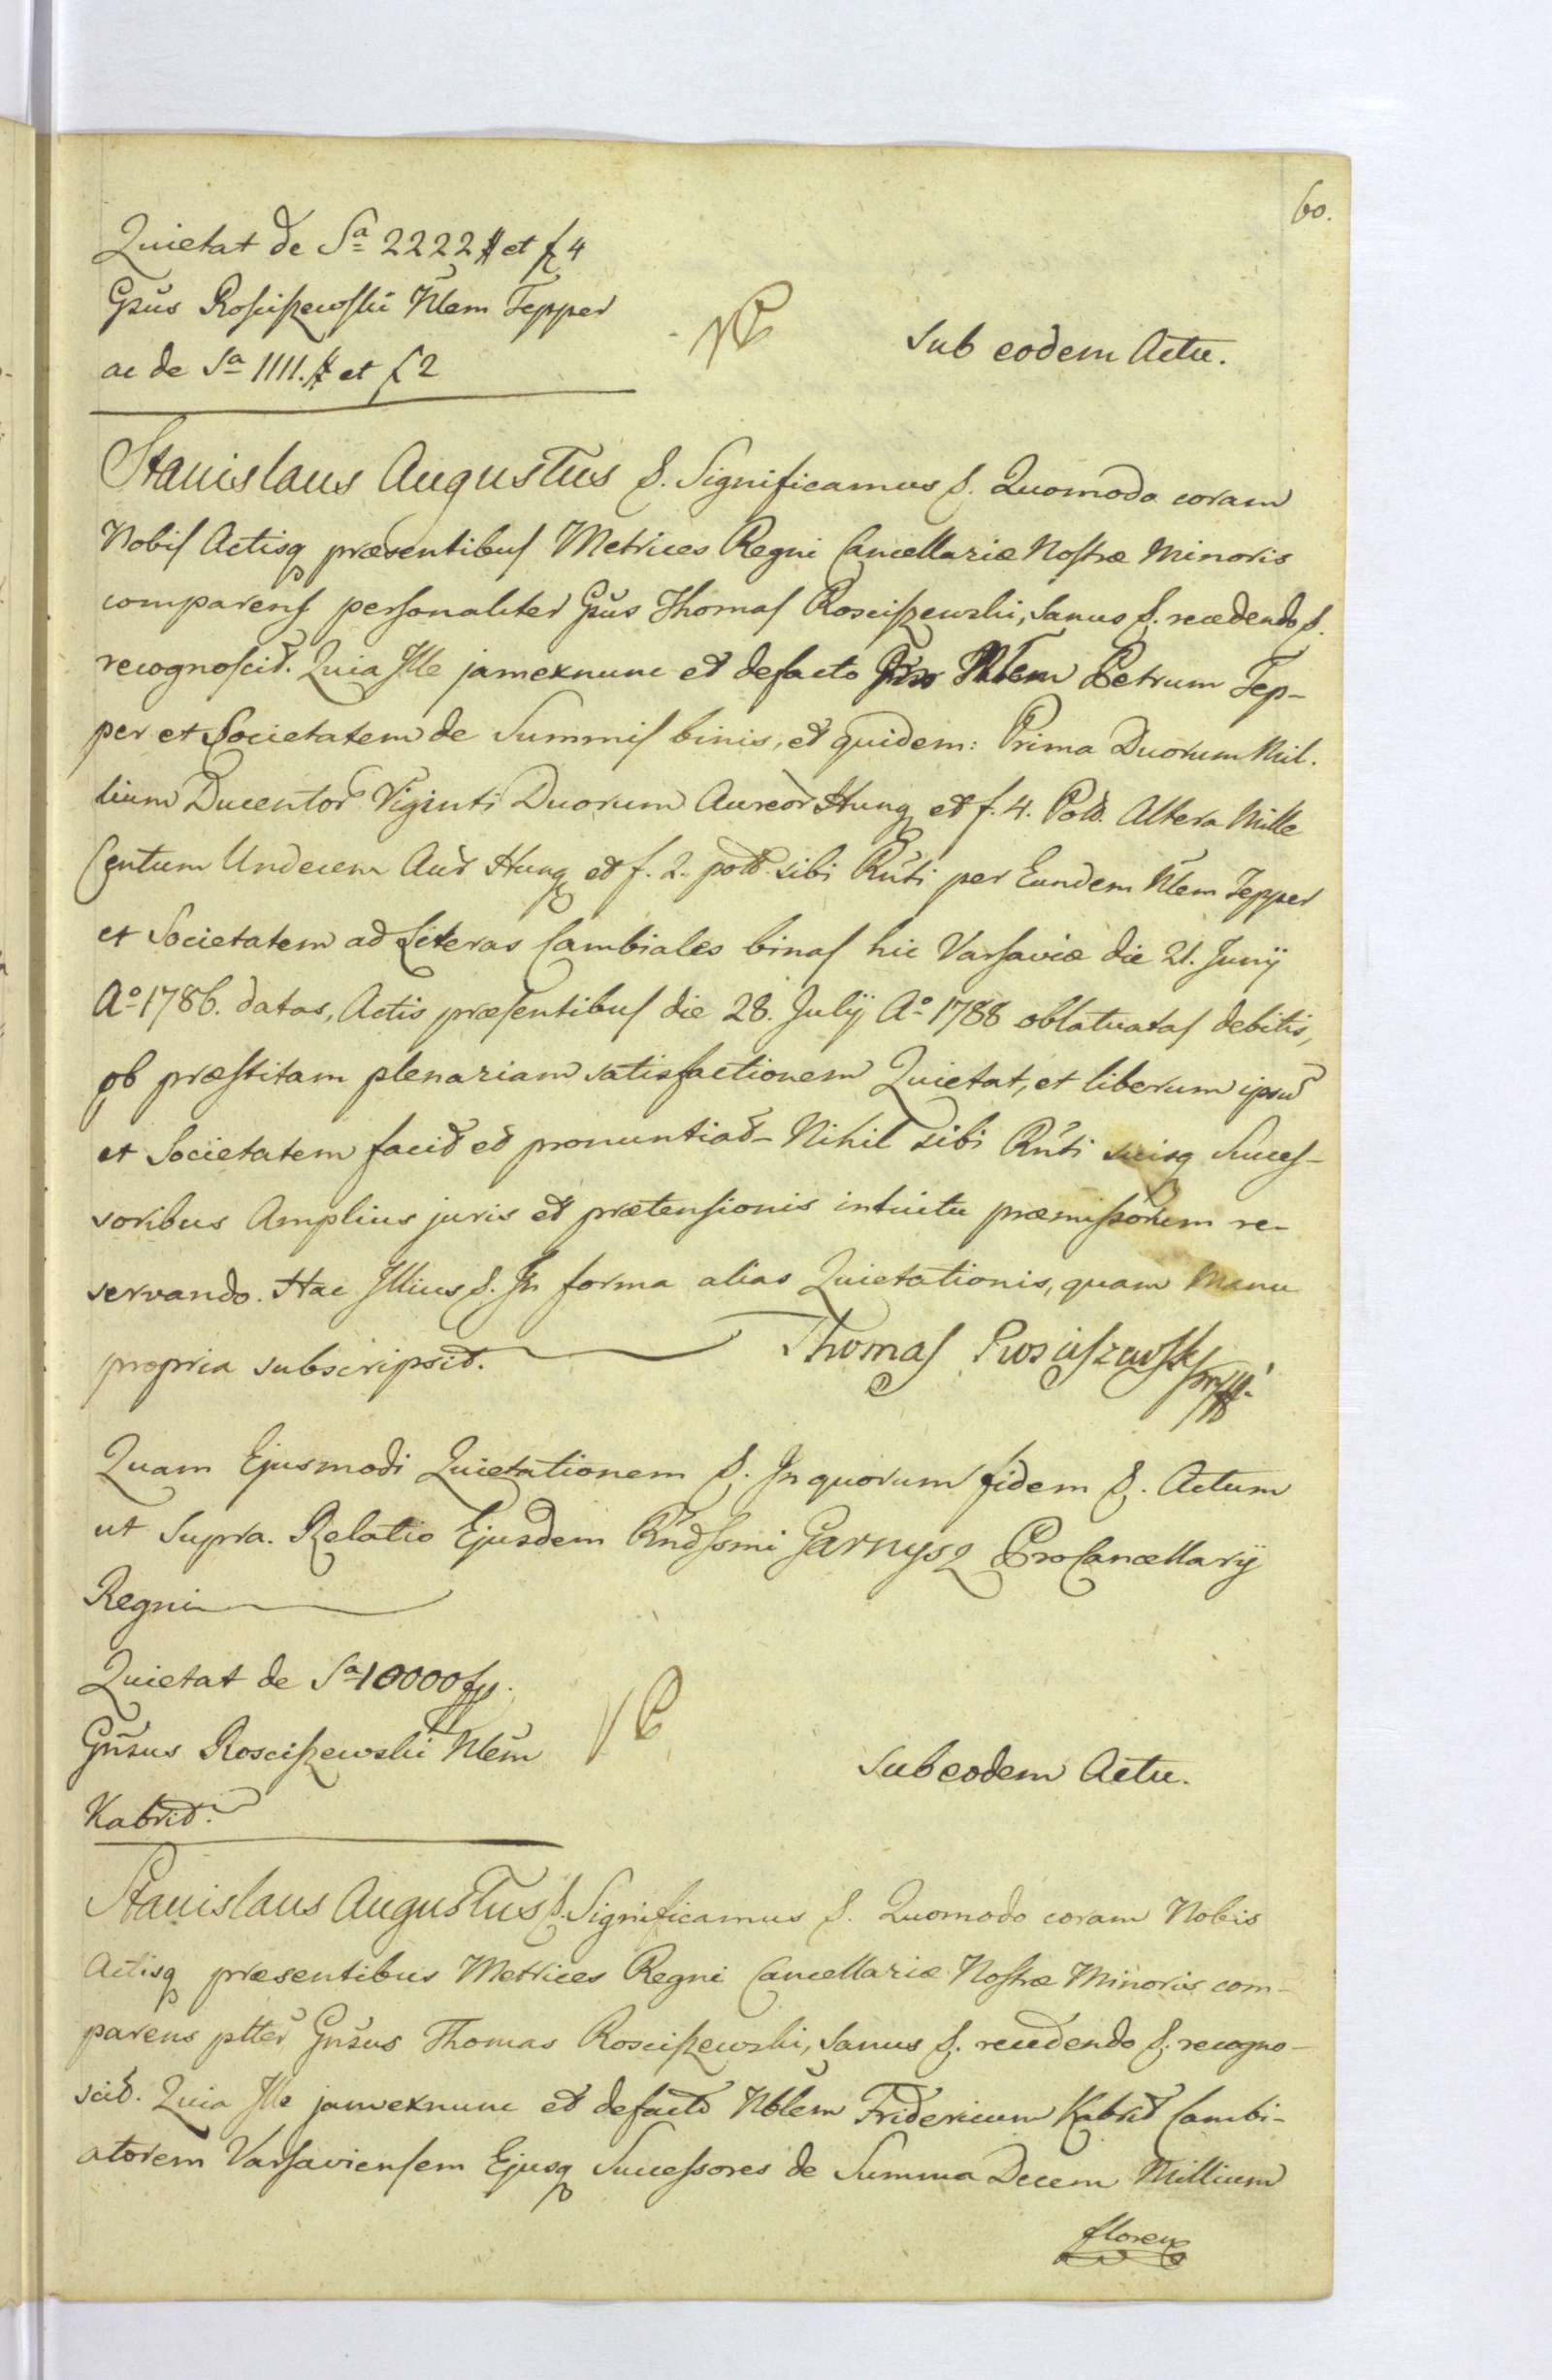 60.
Quietat de Sa 2222 # et f 4
Gsus Rosciszewski Nlem Tepper
ac de Sa 1111. # et f 2
Sub eodem Actu.
Stanislaus Augustus &. Significamus &. Quomodo coram
Nobis Actisq præsentibus Metrices Regni Cancellariæ Nostræ Minoris
comparens personaliter Gsus Thomas Rosciszewski, Sanus &. recedendo &.
recognoscit. Quia Ille jamexnunc et defacto Nlem Petrum Tep-
per et Societatem de Summis binis, et quidem: Prima Duorum Mil-
lium Ducentor Viginti Duorum Aureor Hung et f. 4. Pold. Altera Mille
Centum Undecem Aur Hung et f. 2. pold. sibi Rnti per Eundem Nlem Tepper
et Societatem ad Literas Cambiales binas hic Varsaviæ die 21. Junij
Ao 1786. datas, Actis præsentibus die 28. Julij Ao 1788 oblatuatas debitis,
ob præstitam plenariam satisfactionem Quietat, et liberum ipsũ
et Societatem facit et pronuntiat- Nihil sibi Rnti suisq Succes-
soribus Amplius juris et prætensionis intuitu præmissorum re-
servando. Hac Illius &. In forma alias Quietationis, quam Manu
propria subscripsit. Thomas Rosciszewski mpp
Quam Ejusmodi Quietationem &. In quorum fidem &. Actum
ut Supra. Relatio Ejusdem Rndssmi Garnysz ProCancellarij
Regni
Quietat de Sa 10000 fp.
Gnsus Rosciszewski Nlem
Kabrit.
Sub eodem Actu.
Stanislaus Augustus &. Significamus &. Quomodo coram Nobis
Actisq præsentibus Metrices Regni Cancellariæ Nostræ Minoris com-
parens ptter Gnsus Thomas Rosciszewski, Sanus &. recedendo &. recogno-
scit. Quia Ille jamexnunc et defacto Nblem Fridericum Kabrit Cambi-
atorem Varsaviensem Ejusq Successores de Summa Decem Millium
floren